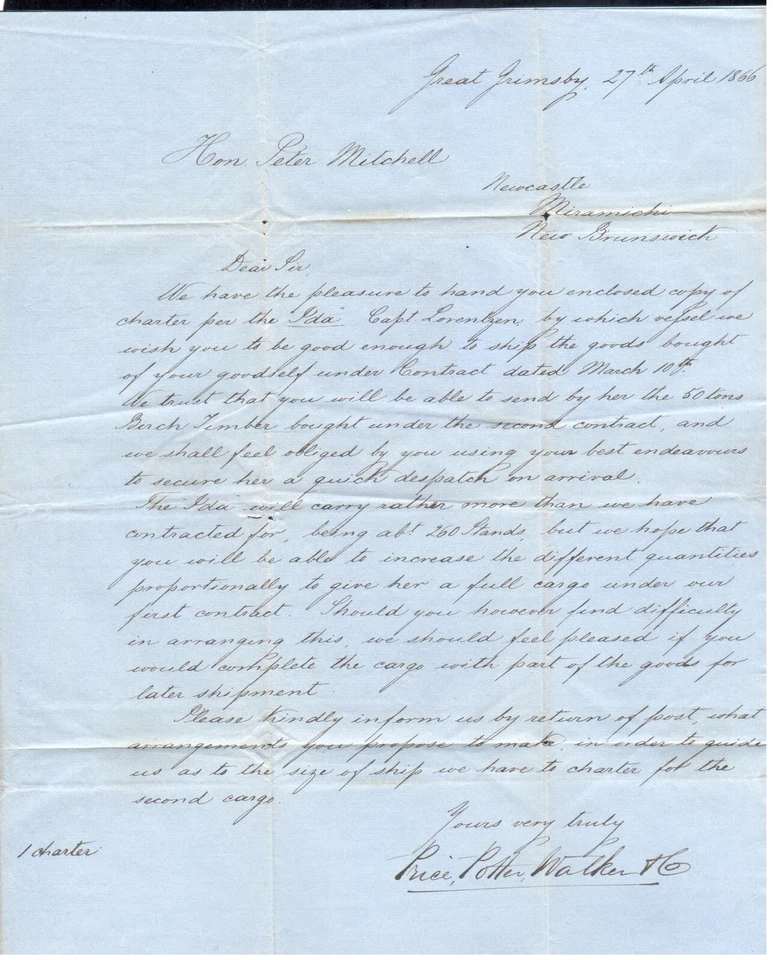 Great Grimsby, 27th April 1866
Hon. Peter Mitchell
Newcastle
Miramichi
New Brunswick
Dear Sir,
We have the pleasure to hand you enclosed copy of
charter per the "Ida" Capt Lorentzen, by which vessel we
wish you to be good enough to ship the goods bought
of your goodself under Contract dated March 10th.
We trust that you will be able to send by her the 50 tons
Birch Timber bought under the second contract, and
we shall feel obliged by you using your best endeavours
to secure her a quick despatch on arrival.
The "Ida" will carry rather more than we have
contracted for, being abt 260 Stands, but we hope that
you will be able to increase the different quantities
proportionally to give her a full cargo under our
first contract. Should you however find difficully
in arranging this, we should feel pleased if you
would complete the cargo with part of the goods for
later shipment.
Please kindly inform us by return of post, what
arrangements you propose to make, in order to guide
us as to the size of ship we have to charter for the
second cargo.
Yours very truly
1 charter
Price, Potter, Walker & Co